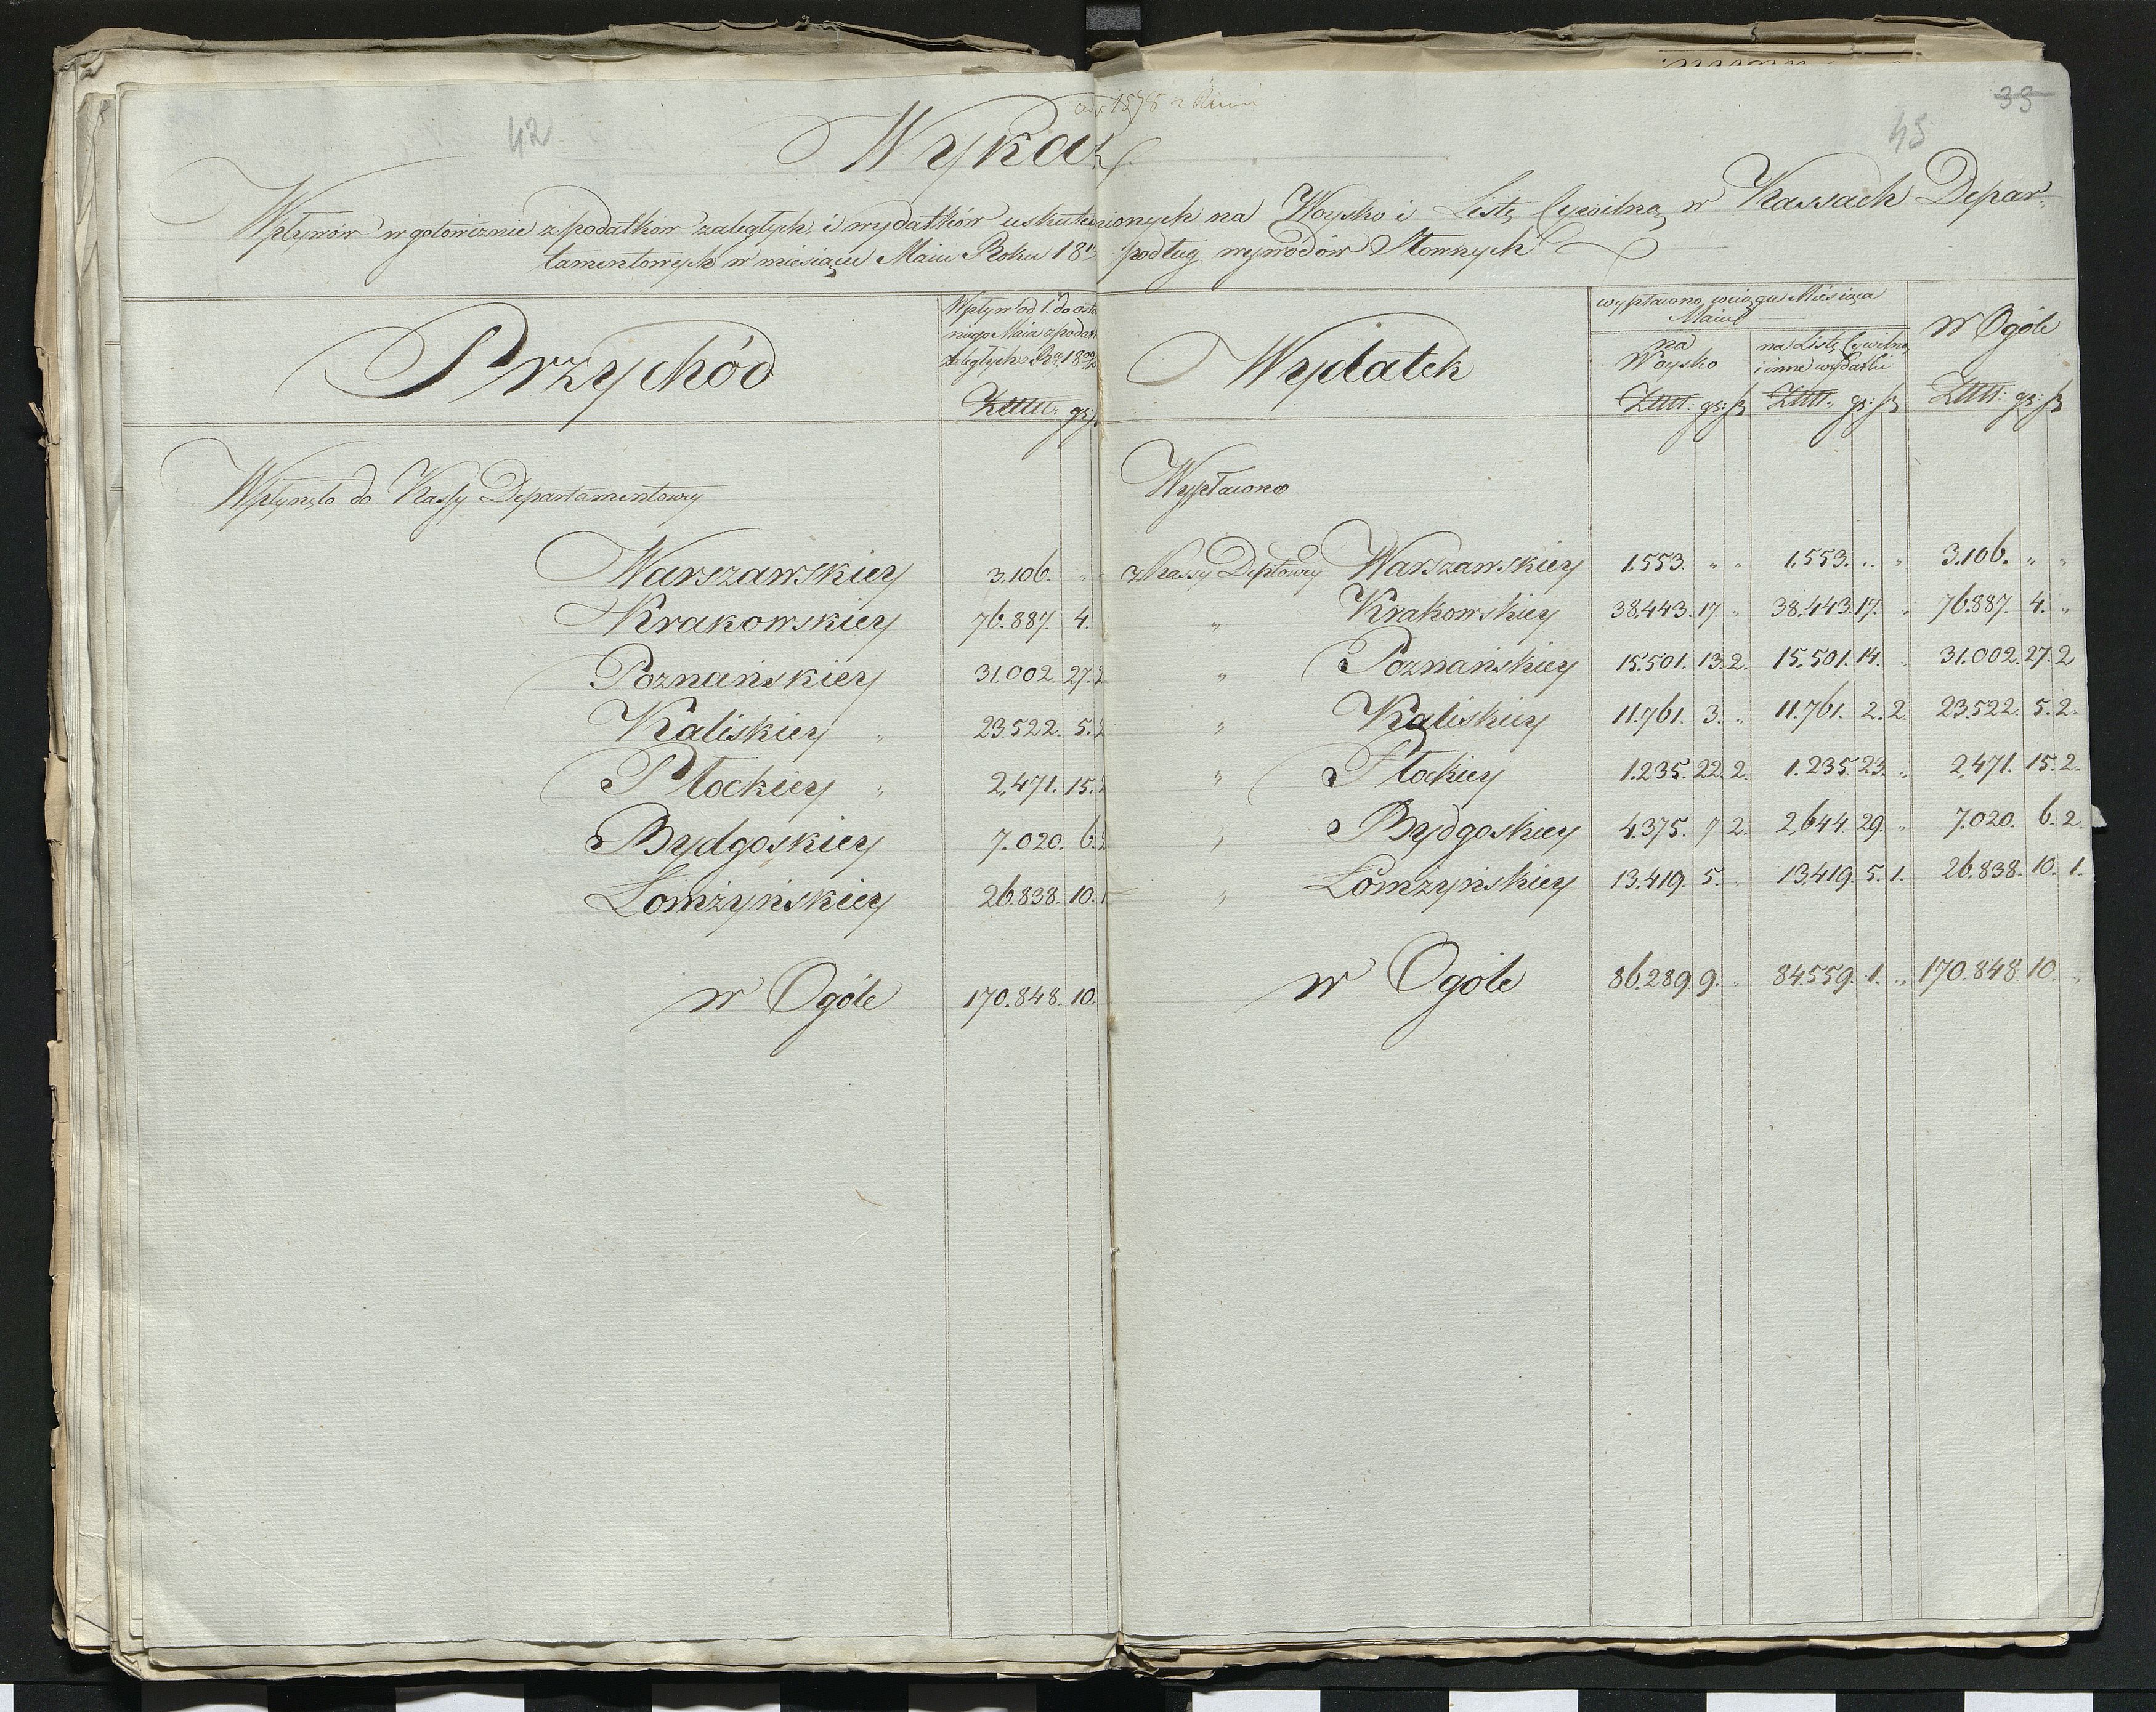 42
45
33
Wykaz
Wpływów w gotowiznie z podatków zaległych i wydatków uskutecznionych na Woysko i Listę Cywilną w Kassach Depar-
tamentowych w miesiącu Maiu Roku 18 podług wywodów Słownych
Przychód
Wpływ od 1. do osta
niego Maia z podat
zaległych z R. 18
Złłłł: gr:
Wydatek
wypłacono wciągu Miesiąca
Maiu
na
Woysko
na Listę Cywilną
i inne wydatki
w Ogóle
Złłłł: gr: β
Złłłł: gr: β
Złłłł: gr: β
Wpłynęło do Kassy Departamentowey
Wypłacono
Warszawskiey 3.106. "
Krakowskiey 76.887. 4.
Poznańskiey 31.002. 27. 2
Kaliskiey " 23.522. 5. 2
Płockiey " 2,471. 15. 2
Bydgoskiey 7.020. 6. 2
Łomżyńskiey 26.838. 10. 1
w Ogóle 170.848. 10.
z Kassy Deptowey Warszawskiey 1.553. " " 1,553. " " 3.106. " "
" Krakowskiey 38.443. 17. " 38.443. 17. " 76.887. 4. "
" Poznańskiey 15.501. 13. 2. 15.501. 14. " 31.002. 27. 2
" Kaliskiey 11.761. 3. " 11.761. 2. 2. 23.522. 5. 2.
" Płockiey 1.235. 22. 2. 1.235. 23. " 2,471. 15. 2.
" Bydgoskiey 4.375. 7 2. 2,644. 29. " 7.020. 6. 2.
" Łomżyńskiey 13.419. 5. " 13.419. 5. 1. 26.838. 10. 1.
w Ogóle 86.289 9. " 84.559. 1. " 170.848. 10. "